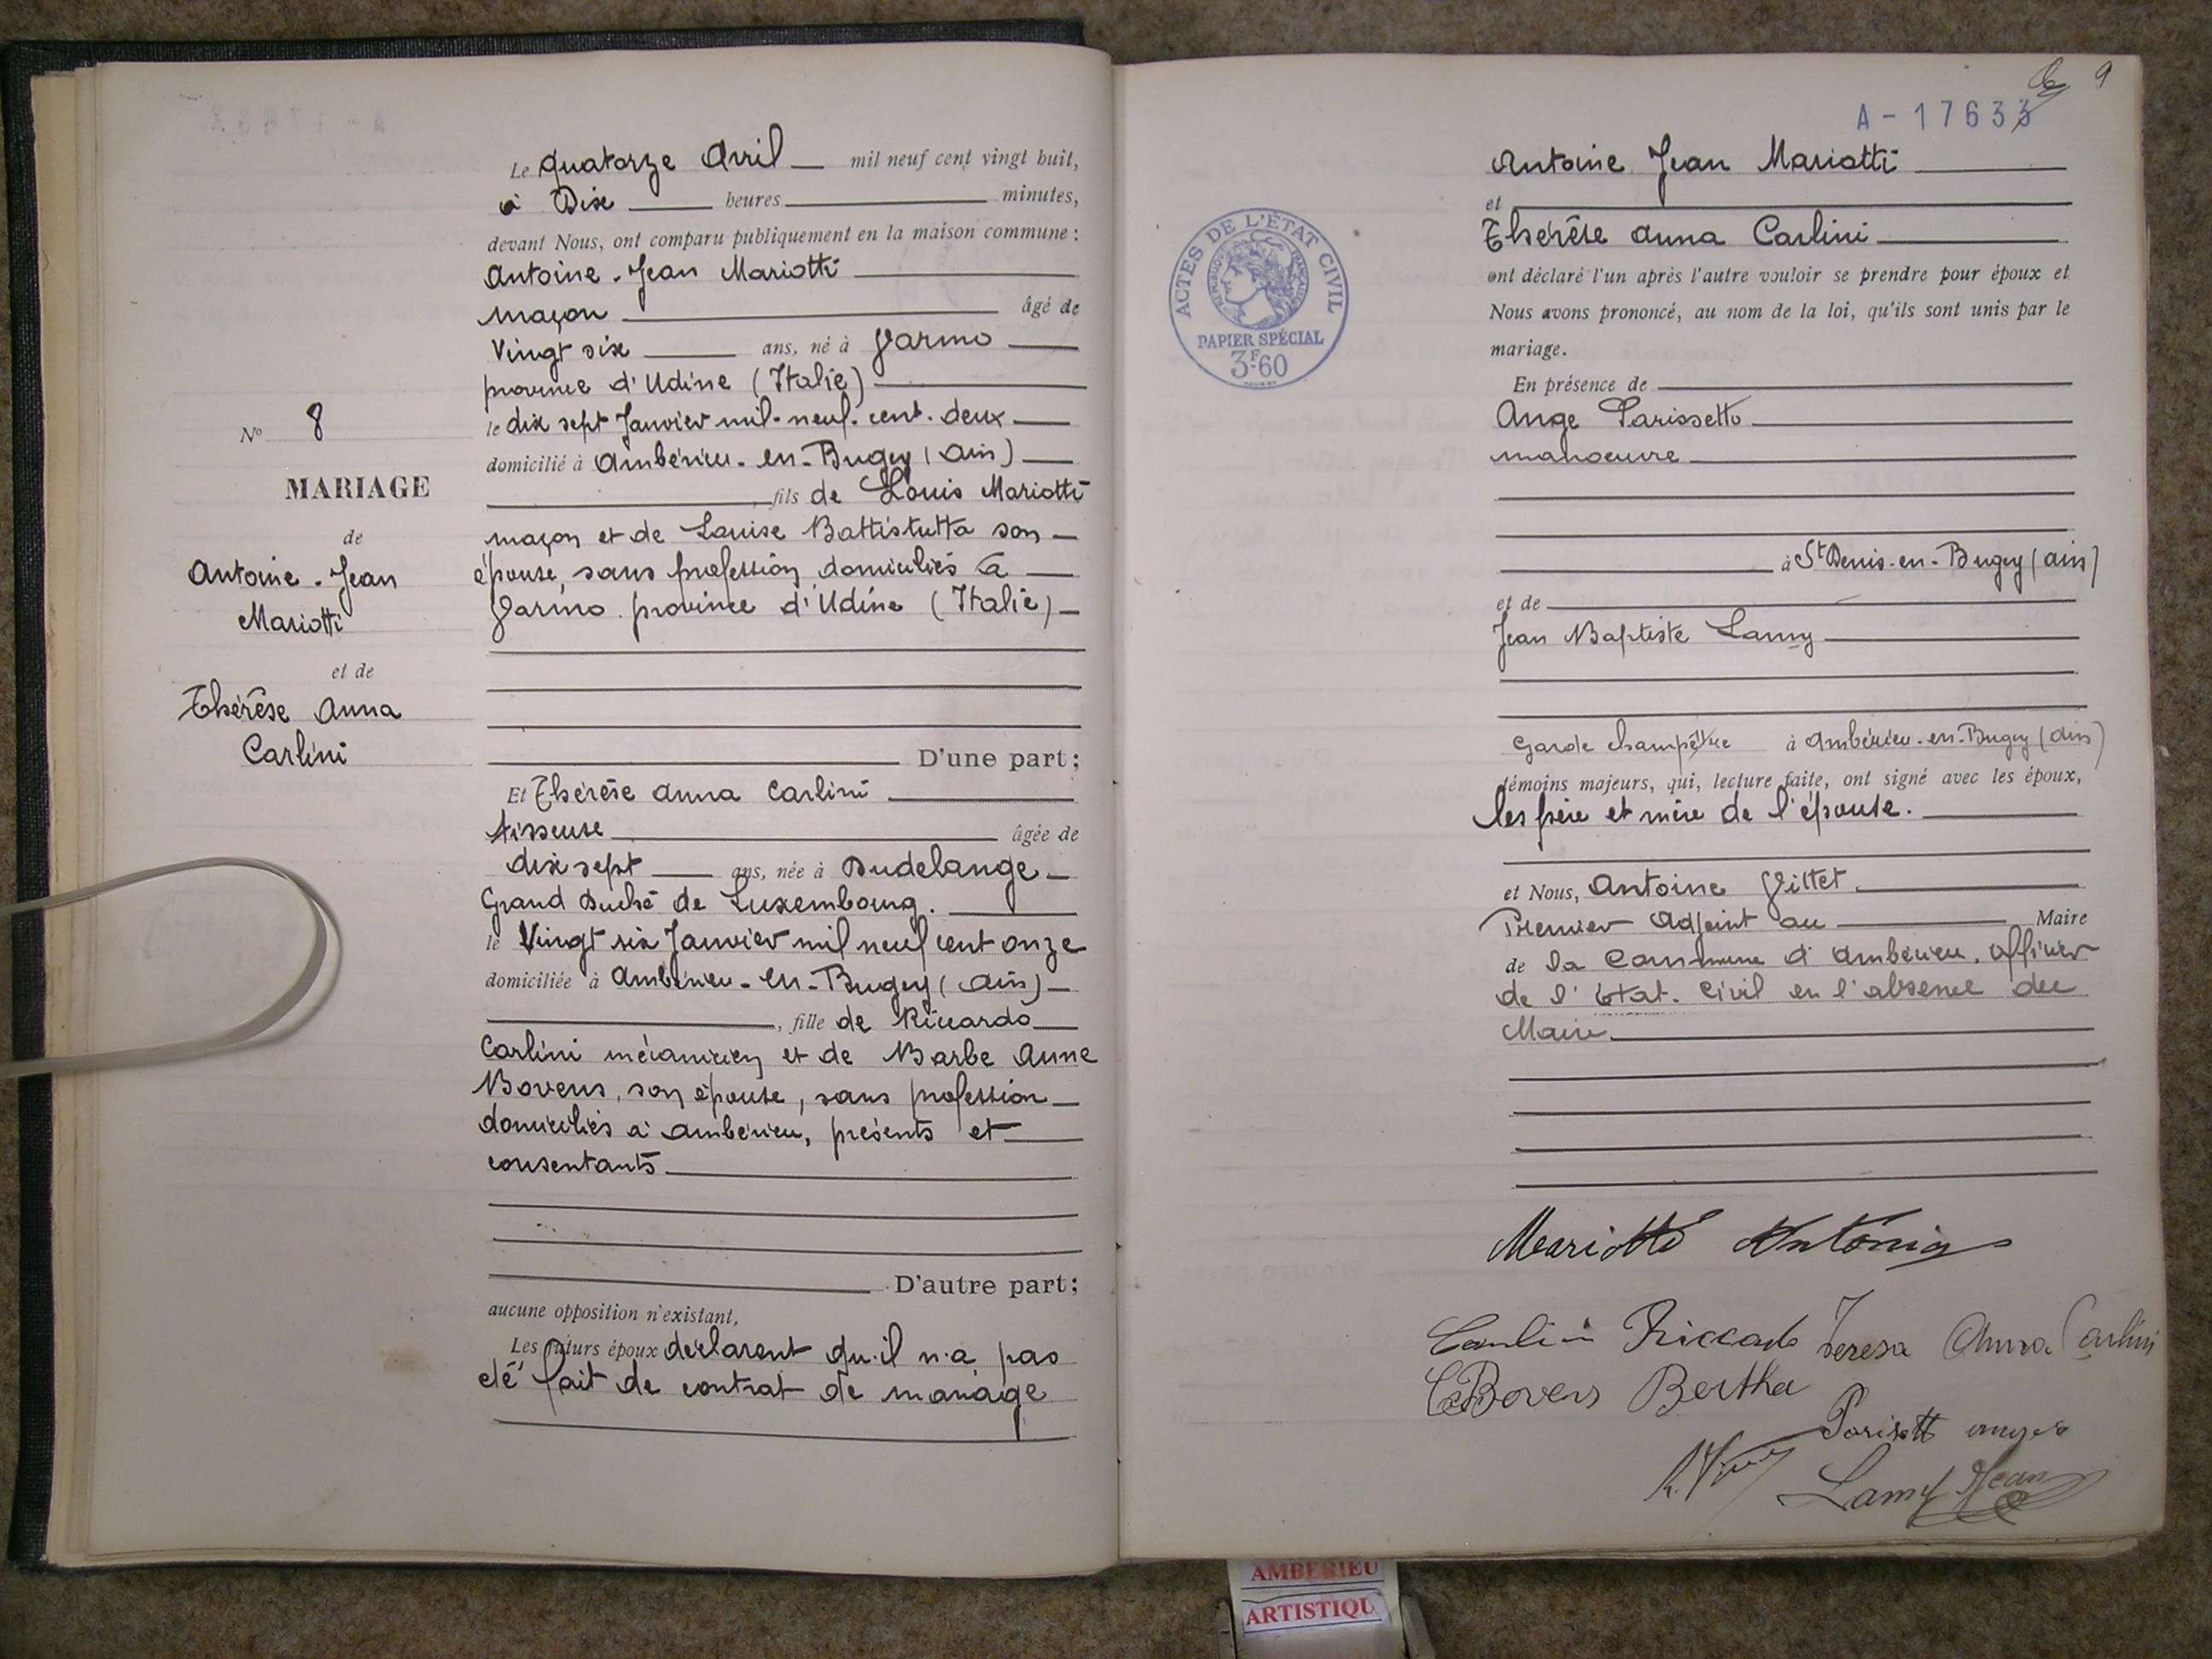 Le Quatorze Avril mil neuf cent vingt huit,
à Dix heures minutes,
devant Nous, ont comparu publiquement en la maison commune :
Antoine - Jean Mariotti
maçon âgé de
Vingt six ans, né à Varmo
province d'Udine (Italie)
le dix sept Janvier mil-neuf-cent-deux
domicilié à Ambérieu-en-Bugey (Ain)
, fils de Louis Mariotti
maçon et de Louise Battistutta son
épouse, sans profession domiciliés à
Varmo province d'Udine (Italie)
D'une part ;
Et Thérèse Anna Carlini
tisseuse âgée de
dix sept ans, née à Dudelange
Grand Duché de Luxembourg.
le Vingt six Janvier mil neuf cent onze
domiciliée à Ambérieu-en-Bugey (Ain)
, fille de Riccardo
Carlini mécanicien et de Barbe Anne
Bovens, son épouse, sans profession
domiciliés à Ambérieu, présents et
consentants
D'autre part ;
aucune opposition n'existant,
Les futurs époux déclarent qu'il n'a pas
été fait de contrat de mariage
No 8
MARIAGE
de
Antoine - Jean
Mariotti
et de
Thérèse Anna
Carlini
9
A - 17633
ACTES DE L'ÉTAT CIVIL
RÉPUBLIQUE FRANÇAISE
PAPIER SPÉCIAL
3F60
Antoine Jean Mariotti
et
Thérèse Anna Carlini
ont déclaré l'un après l'autre vouloir se prendre pour époux et
Nous avons prononcé, au nom de la loi, qu'ils sont unis par le
mariage.
En présence de
Ange Parissetto
manoeuvre
à St Denis-en-Bugey (Ain)
et de
Jean Baptiste Lamy
Garde champêtre à Ambérieu-en-Bugey (Ain)
témoins majeurs, qui, lecture faite, ont signé avec les époux,
les père et mère de l'épouse.
et Nous, Antoine Villet.
Premier Adjoint au Maire
de la Commune d'Ambérieu. officier
de l'état-civil en l'absence du
Maire
Mariotti Antonio
Carlini Riccardo Teresa Anna Carlini
Bovens Bertha
Lamy Jean
AMBERIEU
ARTISTIQU